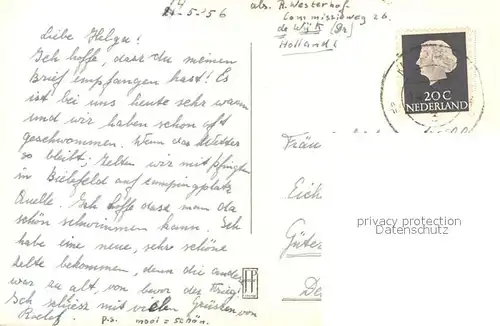 14
21-5-'56
Liebe Helga!
Ich hoffe, dasz du meinen
Brief empfangen hast! Es
ist bei uns heute sehr warm
und wir haben schon oft
geschwommen. Wenn das Wetter
so bleibt, zelten wir mit Pfingsten
in Bielefeld auf campingplatz
Quelle. Ich hoffe dasz man da
schön schwimmen kann. Ich
habe eine neue, sehr schöne
zelte bekommen, denn die andere
war zu alt, von bevor des Krieg!
Ich schliesz mit vielen Grüszen von
Roelof.
p.s. mooi = schön.
abs. R. Westerhof
Commissieweg 26.
de Wijk (Dr)
Holland!
20 C
NEDERLAND
Fräu
Eick
Güter
De
privacy protection
Datenschutz